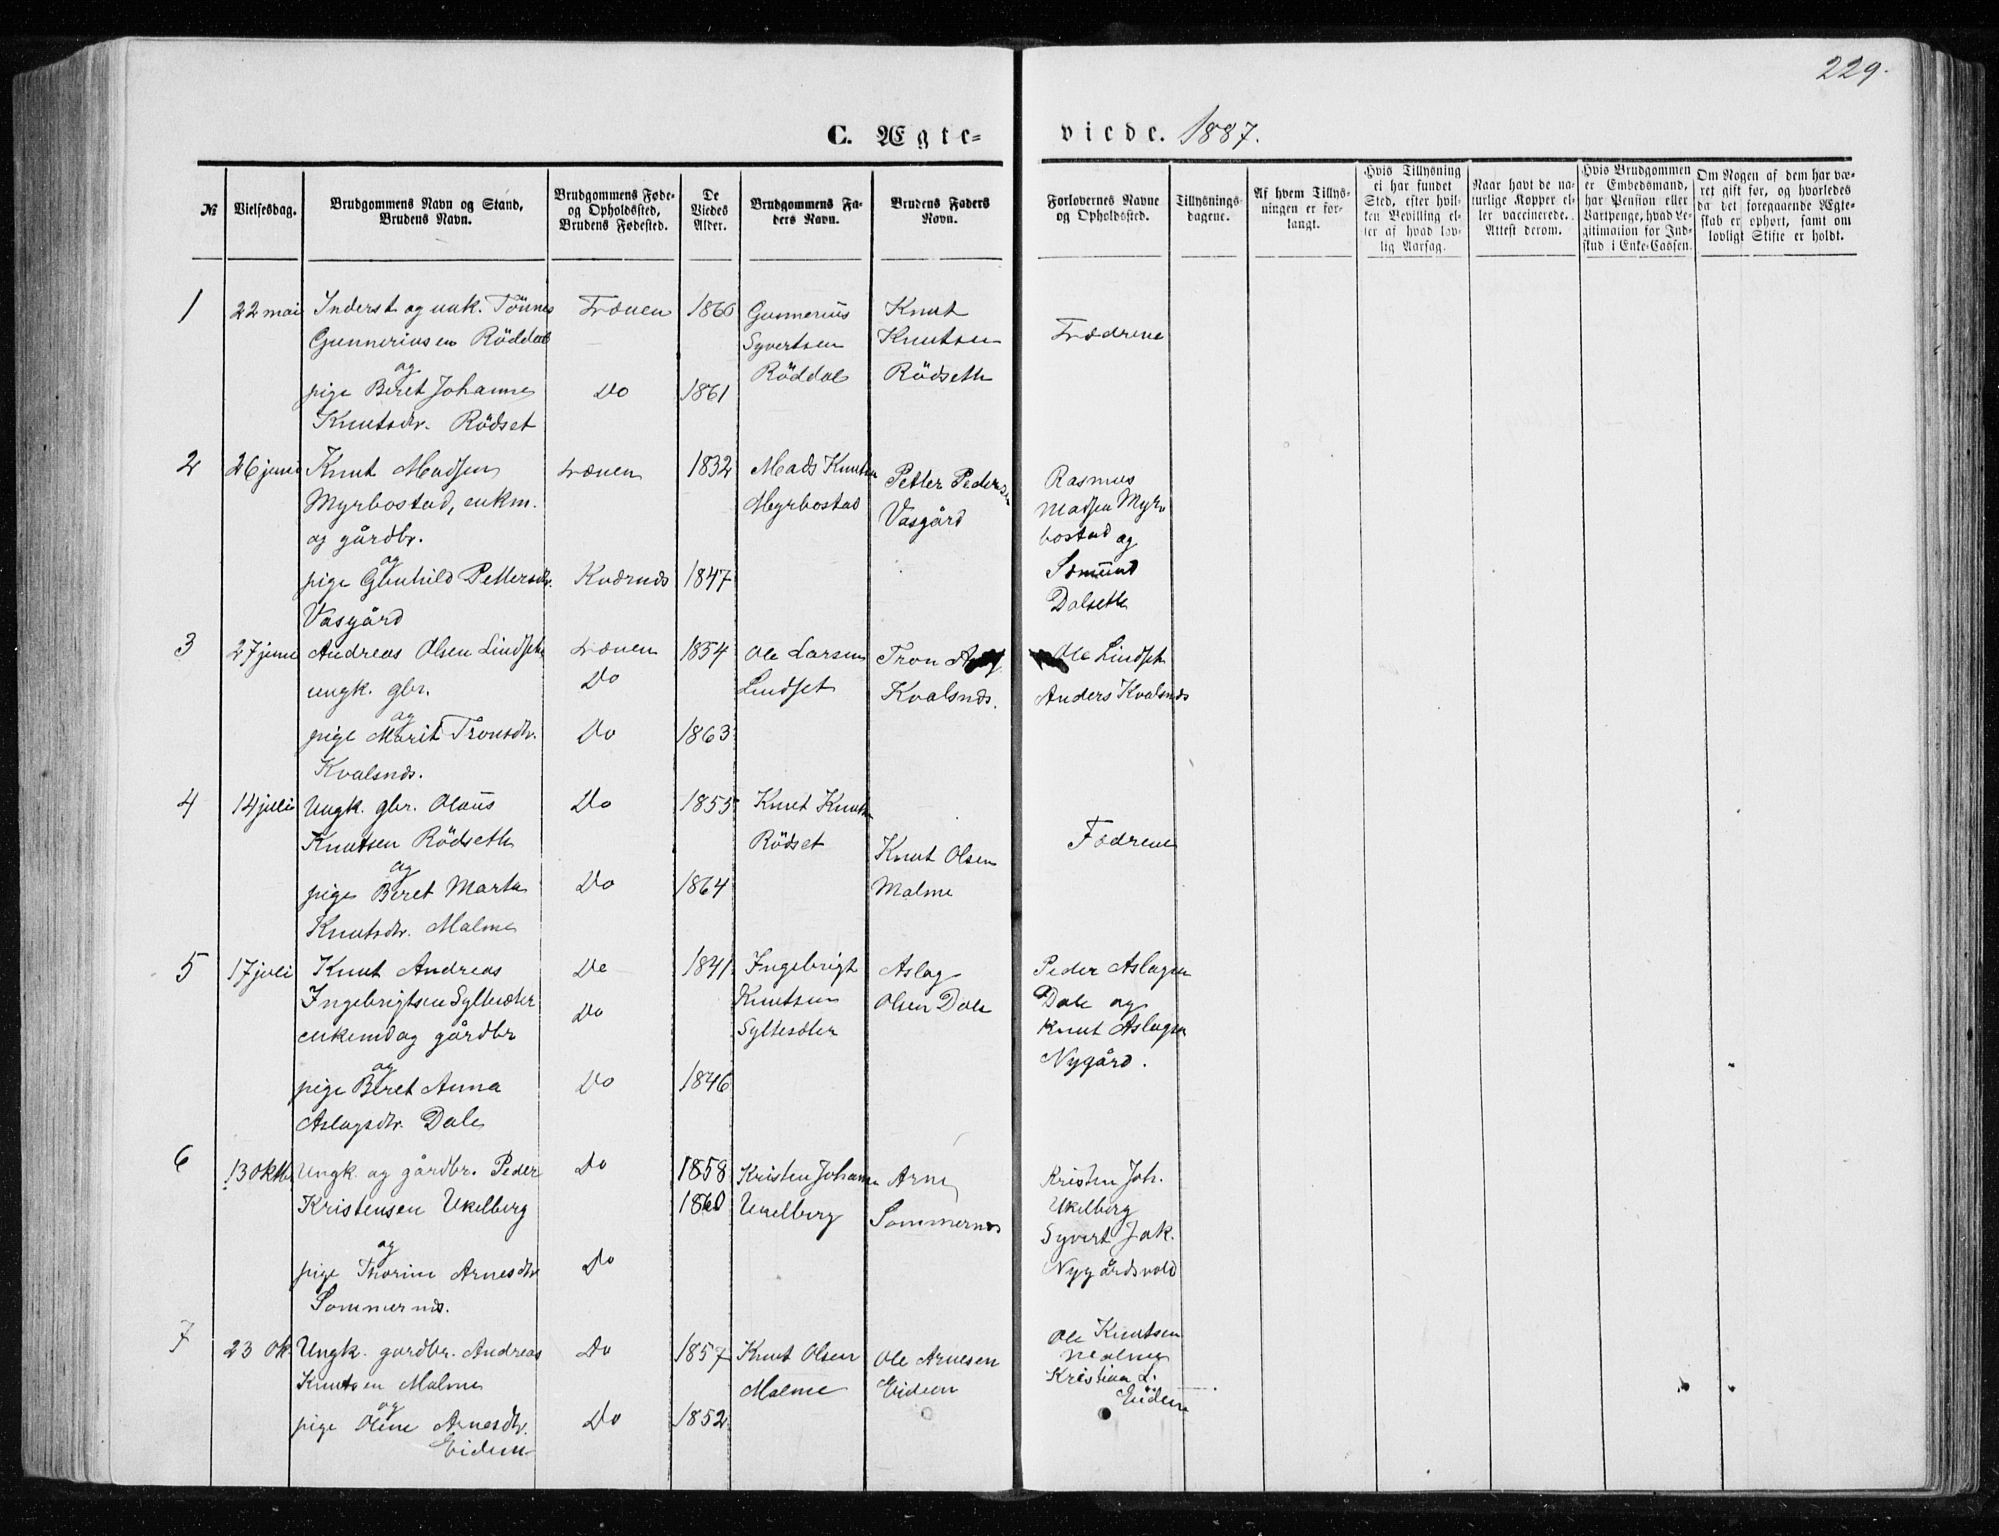 229.
C. Ægte-
viede. 1887.
№
Vielsesdag.
Brudgommens Navn og Stand,
Brudens Navn.
Brudgommens Føde-
og Opholdssted,
Brudens Fødested.
De
Viedes
Alder.
Brudgommens Fa-
ders Navn.
Brudens Faders
Navn.
Forlovernes Navne
og Opholdssted.
Tillysnings-
dagene.
Af hvem Tillys-
ningen er for-
langt.
Hvis Tillysning
ei har fundet
Sted, efter hvil-
ken Bevilling el-
ler af hvad lov-
lig Aarsag.
Naar havt de na-
turlige Kopper el-
ler vaccinerede.
Attest derom.
Hvis Brudgommen
er Embedsmand,
har Pension eller
Vartpenge, hvad Le-
gitimation for Ind-
skud i Enke-Cassen.
Om Nogen af dem har væ-
ret gift før, og hvorledes
da det foregaaende Ægte-
skab er ophørt, samt om
lovligt Skifte er holdt.
1
22 mai
Inderst og unk. Tönnes
Gunneriusen Röddal
og
pige Beret Johanne
Knutsdtr. Rödset
Frænen
Do
1860
1861
Gunnerius
Syvertsen
Röddal
Knut
Knutsen
Rödseth
Fædrene
2
26 juni
Knut Madsen
Myrbostad, enkm.
og gårdbr.
og
pige Gunhild Pettersdtr.
Vasgård
Frænen
Kværnæs
1832
1847
Mads Knutsen
Myrbostad
Petter Pedersen
Vasgård
Rasmus
Madsen Myr-
bostad og
Sæmund
Dalseth
3
27 juni
Andreas Olsen Lindset
ungk. gbr.
og
pige Marit Tronsdtr.
Kvalsnæs.
Frænen
Do
Do
1854
1863
Ole Larsen
Lindset
Tron
Kvalsnæs.
Ole Lindset
Anders Kvalsnæs
4
14 juli
Ungk. gbr. Olaus
Knutsen Rödseth
og
pige Beret Marta
Knutsdtr. Malme
Do
Do
1855
1864
Knut Knutsen
Rödset
Knut Olsen
Malme
Fædrene
5
17 juli
Knut Andreas
Ingebrigtsen Syltesæter
enkemd og gårdbr
og
pige Beret Anna
Aslagsdtr. Dale
Do
Do
Do
1841
1846
Ingebrigt
Knutsen
Syltesæter
Aslag
Olsen Dale
Peder Aslagsen
Dale og
Knut Aslagsen
Nygård.
6
13 oktbr
Ungk. og gårdbr. Peder
Kristensen Ukelberg
og
pige Thorine Arnesdtr
Sommernæs.
Do
Do
1858
1860
Kristen Johansen
Ukelberg
Arne
Sommernæs
Kristen Joh.
Ukelberg
Syvert Jak.
Nygårdsvold
7
23 ok.
Ungk. gardbr. Andreas
Knutsen Malme
og
pige Oline Arnesdtr.
Eidem
Do
Do
1857
1852
Knut Olsen
Malme
Ole Arnesen
Eidem
Ole Knutsen
Malme
Kristian L.
Eidem